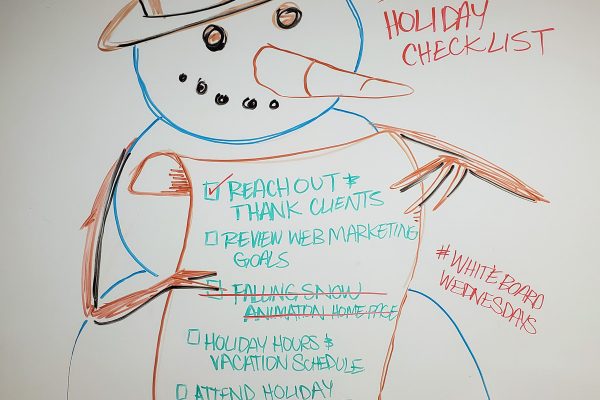 HOLIDAY
CHECKLIST
REACH OUT &
THANK CLIENTS
REVIEW WEB MARKETING
GOALS
FALLING SNOW
ANIMATION HOMEPAGE
HOLIDAY HOURS &
VACATION SCHEDULE
ATTEND HOLIDAY
#WHITEBOARD
WEDNESDAYS